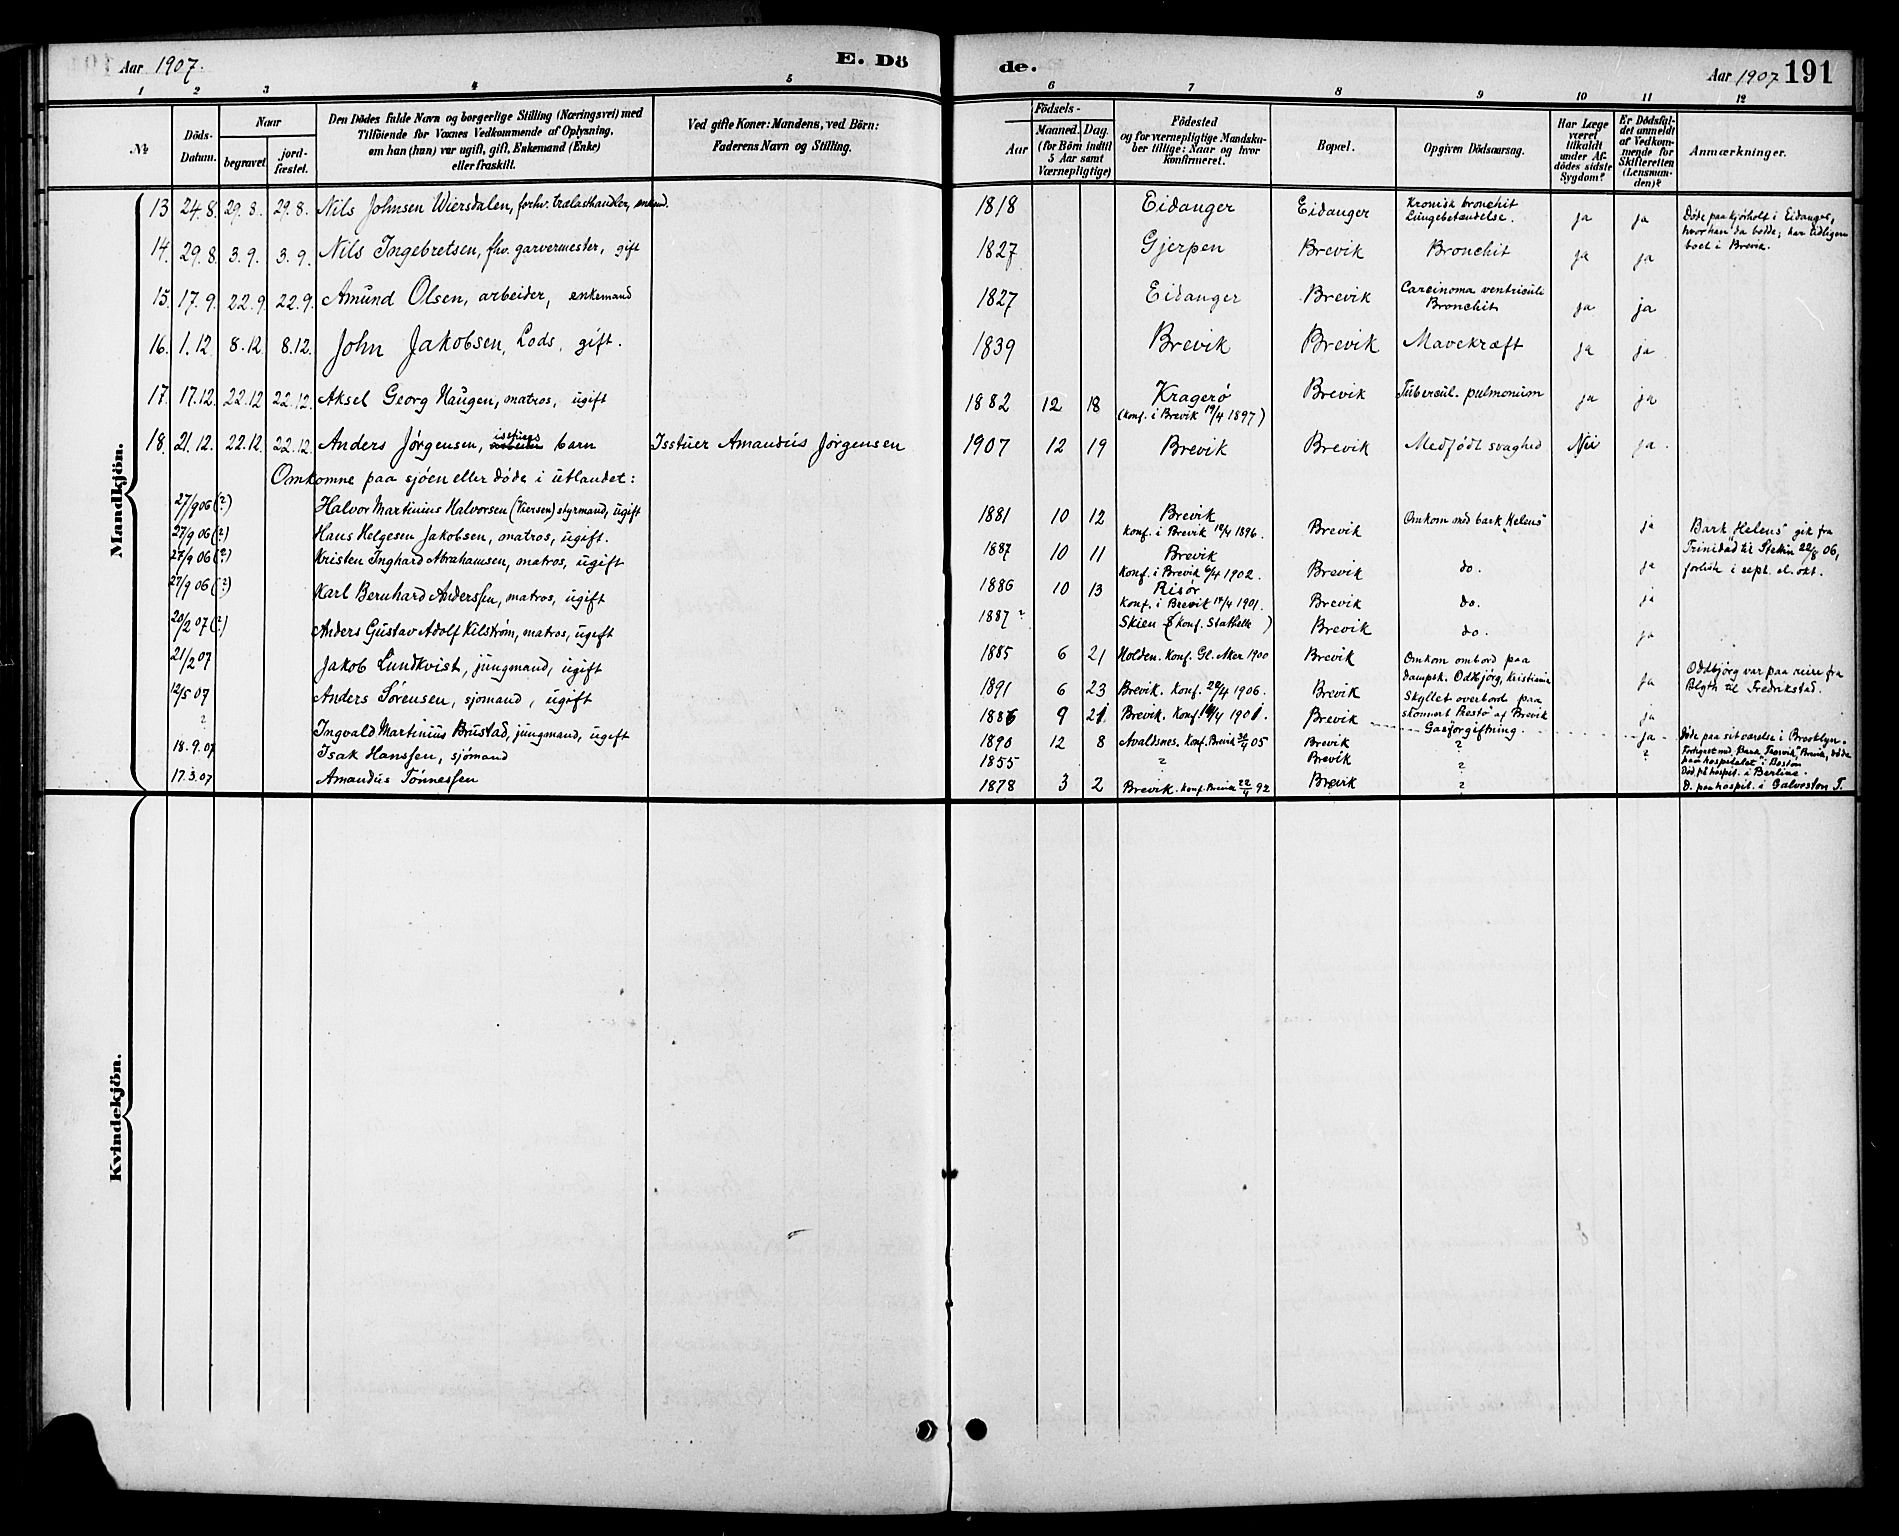 Aar 1907. E. Dö de. Aar 1907 191
1 2 3 4 5 6 7 8 9 10 11 12
№
Döds-Datum.
Naar
begravet.
jord-fæstet.
Den Dödes fulde Navn og borgerlige Stilling (Næringsvei) med
Tilföiende for Voxnes Vedkommende af Oplysning,
om han (hun) var ugift, gift, Enkemand (Enke)
eller fraskilt.
Ved gifte Koner: Mandens, ved Börn:
Faderens Navn og Stilling.
Födsels-
Aar
Maaned. Dag.
(for Börn indtil
5 Aar samt
Værnepligtige)
Födested
og for værnepligtige Mandska-
ber tillige: Naar og hvor
konfirmeret.
Bopæl.
Opgiven Dödsaarsag.
Har Læge
været
tilkaldt
under Af-
dödes sidste
Sygdom?
Er Dödsfal-
det anmeldt
af Vedkom-
mende for
Skifteretten
(Lensman-
den)?
Anmærkninger.
Mandkjön.
13 24.8. 29.8. 29.8. Nils Johnsen Wiersdalen, forhv. trælasthandler, enkmd. 1818 Eidanger Eidanger Kronisk bronchit Lungebetændelse. ja ja Döde paa Kjørholt i Eidanger, hvor han da bodde; har tidligere boet i Brevik.
14. 29.8. 3.9. 3.9. Nils Ingebretsen, fhv. garvermester, gift 1827 Gjerpen Brevik Bronchit ja ja
15. 17.9. 22.9. 22.9. Amund Olsen, arbeider, enkemand 1827 Eidanger Brevik Carcinoma ventriculi Bronchit ja ja
16. 1.12. 8.12. 8.12. John Jakobsen, Lods, gift. 1839 Brevik Brevik Mavekræft ja ja
17. 17.12. 22.12. 22.12. Aksel Georg Haugen, matros, ugift 1882 12 18 Kragerø (konf. i Brevik 19/4 1897) Brevik Tubercul. pulmonum ja ja
18. 21.12. 22.12. 22.12. Anders Jørgensen, isstuers barn Isstuer Amandus Jørgensen 1907 12 19 Brevik Brevik Medfödt svaghed Nei ja
Omkomne paa sjøen eller døde i utlandet:
27/9 06 (?) Halvor Martinius Halvorsen (Viersen) styrmand, ugift 1881 10 12 Brevik konf. i Brevik 12/4 1896. Brevik Omkom med bark "Helens" ja Bark "Helens" gik fra Trinidad til Stettin 22/8 06, forliste i sept. el. okt.
27/9 06 (?) Hans Helgesen Jakobsen, matros, ugift. 1887 10 11 Brevik konf. i Brevik 6/4 1902. Brevik do. ja
27/9 06 (?) Kristen Inghard Abrahamsen, matros, ugift 1886 10 13 Risør konf. i Brevik 14/4 1901. Brevik do. ja
27/9 06 (?) Karl Bernhard Anderssen, matros, ugift 1887 ? Skien (konf. Stathelle ) Brevik do. ja
20/2 07 (?) Anders Gustav Adolf Kilstrøm, matros, ugift 1885 6 21 Holden. Konf. Gl. Aker 1900 Brevik Omkom ombord paa dampsk. Odbjörg, Kristiania ja Oddbjörg var paa reise fra Blyth til Fredrikstad.
21/2 07 Jakob Lundkvist, jungmand, ugift 1891 6 23 Brevik. Konf. 22/4 1906. Brevik Skyllet overbord paa skonnert "Præstø" af Brevik ja
12/5 07 Anders Sörensen, sjømand, ugift 1886 9 21 Brevik. Konf. 14/4 1901. Brevik Gasforgiftning. ja Döde paa sit værelse i Brooklyn.
? Ingvald Martinius Brustad, jungmand, ugift 1890 12 8 Avaldsnes. Konf. Brevik 30/4 05 Brevik ? ? Forhyret med "Bark Trosvik", Brevik, døde paa hospitalet i Boston
18.9.07 Isak Hanssen, sjömand 1855 ? Brevik ? Død på hospit. i Berlice.
17.3.07 Amandus Tønnessen 1878 3 2 Brevik. Konf. Brevik 22/4 92 Brevik ? D. paa hospit. i Galveston T.
Kvindekjön.